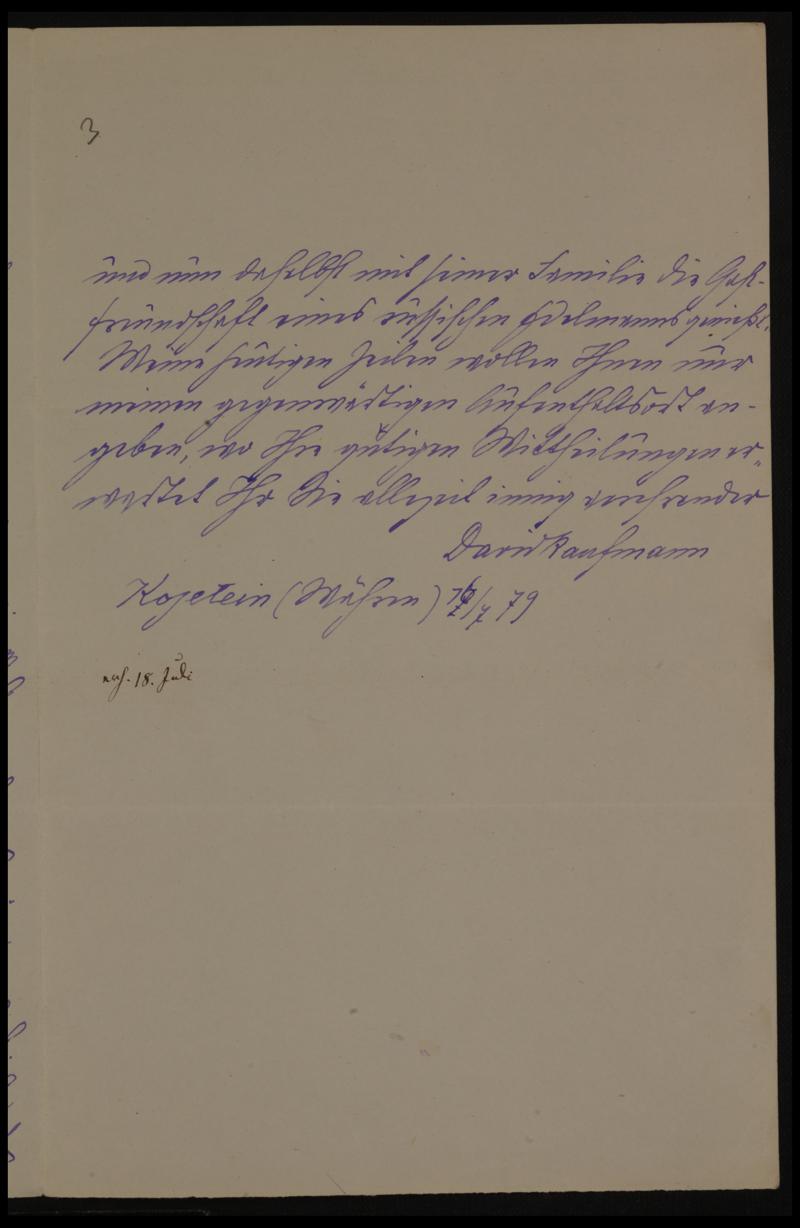 3
und nun daselbst mit seiner Familie die Gast-
freundschaft eines russischen Edelmanns genießt.
Meine heutigen Zeilen wollen Ihnen nur
meinen gegenwärtigen Aufenthaltsort an-
geben, wo Ihre gütigen Mittheilungen er-
wartet Ihr Sie allezeit innig verehrender
David Kaufmann
Kojetein (Mähren) /7 79
18. Juli